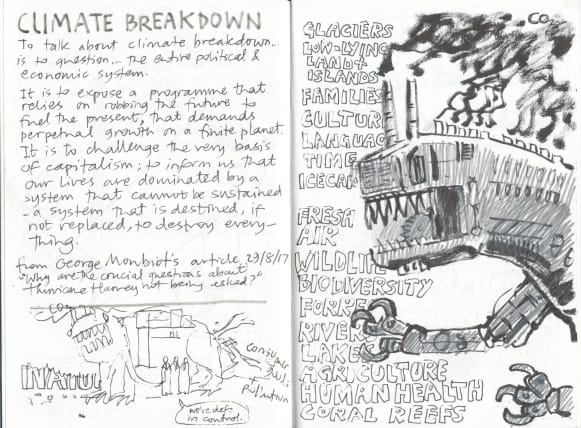 CLIMATE BREAKDOWN
To talk about climate breakdown...
is to question... the entire political &
economic system.
It is to expose a programme that
relies on robbing the future to
fuel the present, that demands
perpetual growth on a finite planet.
It is to challenge the very basis
of capitalism; to inform us that
our lives are dominated by a
system that cannot be sustained
- a system that is destined, if
not replaced, to destroy every-
thing.
from George Monbiot's article, 29/8/17
"Why are the crucial questions about
Hurricane Harvey not being asked?"
CO2
consumer
goods
Pollution
INATU
we're def.
in control.
CO2
GLACIERS
LOW-LYING
LAND &
ISLANDS
FAMILIES
CULTUR
LANGUAG
TIME
ICECAP
FRESH
AIR
WILDLIFE
BIODIVERSITY
FORE
RIVER
LAKE
AGRICULTURE
HUMAN HEALTH
CORAL REEFS